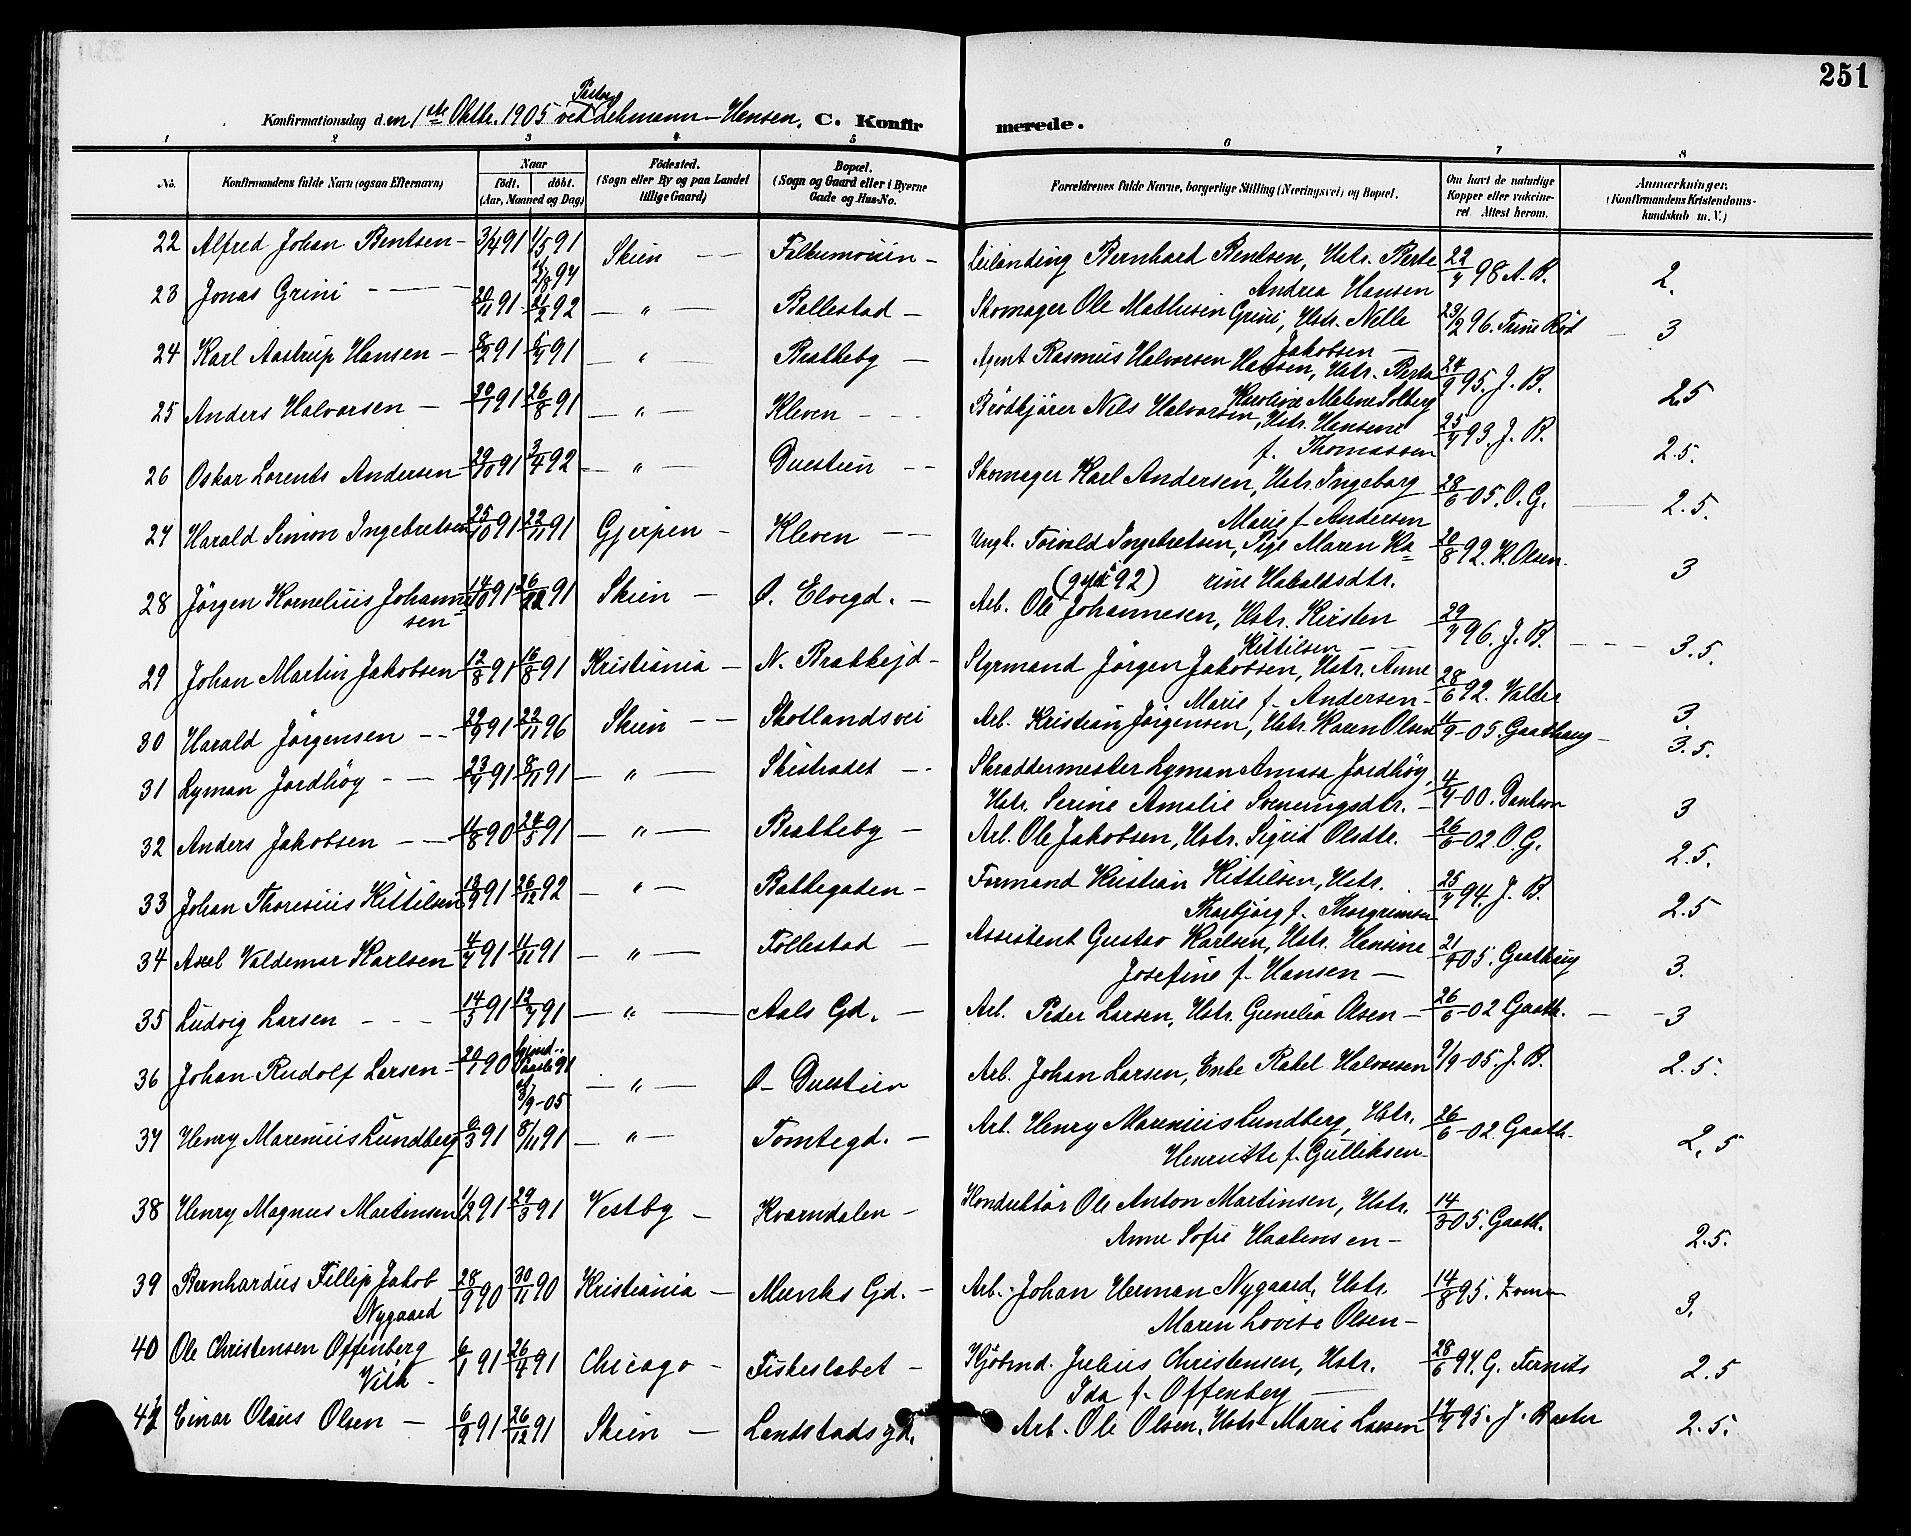 251
Konfirmationsdag den 1ste Oktbr. 1905 ved Pastor Lehmann-Hansen. C. Konfirmerede.
1 2 3 4 5 6 7 8
No. Konfirmandens fulde Navn (ogsaa Efternavn) Naar födt. döbt. (Aar, Maaned og Dag) Födested. (Sogn eller By og paa Landet tillige Gaard) Bopæl. (Sogn og Gaard eller i Byerne Gade og Hus-No. Forældrenes fulde Navne, borgerlige Stilling (Næringsvei) og Bopæl. Om havt de naturlige Kopper eller vaccineret. Attest herom. Anmærkninger. (Konfirmandens Kristendomskundskab m. V.)
22 Alfred Johan Bentsen 3/4 91 1/5 91 Skien Falkumsveien Leilending Bernhard Bentsen, Hstr. Berte Andrea Hansen 22/7 98 A. B. 2.
23 Jonas Grini 20/11 91 21/2 92 " Bollestad Skomager Ole Mathisen Grini, Hstr. Nelle Jakobsen 23/2 96. Trine Röd 3
24 Karl Aastrup Hansen 8/2 91 5/7 91 " Bratteby Agent Rasmus Halvorsen Hansen, Hstr. Berta Karoline Malene Solberg 24/9 95. J. B. 2.5
25 Anders Halvorsen 30/7 91 26/8 91 " Kleven Brödkjörer Nils Halvorsen, Hstr. Hansine f. Thomassen 25/7 93. J. B. 2.5.
26 Oskar Lorents Andersen 29/10 91 3/4 92 " Duestien Skomager Karl Andersen, Hstr. Ingeborg Marie f. Andersen 28/6 05. O. G. 2.5.
27 Harald Simon Ingebretsen 25/10 91 22/11 91 Gjerpen Kleven Ungk. Torvald Ingebretsen, Pige Maren Karine Haraldsdtr. 20/8 92. K. Olsen. 3
28 Jörgen Kornelius Johannesen 14/10 91 26/12 91 Skien Ö. Elvegd. Arb. Ole Johannesen, Hstr. Kirsten Kittilsen 29/7 96. J. B. 3.5.
29 Johan Martin Jakobsen 12/8 91 16/8 91 Kristiania N. Brakkejd Styrmand Jörgen Jakobsen, Hstr. Anne Marie f. Andersen 28/6 92. Valder 3.
30 Harald Jörgensen 29/9 91 22/11 96 Skien Skotlandsvei Arb. Kristian Jörgensen, Hstr. Karen Olsen 4/9-05. Gaathaug 3.5.
31 Lyman Jordhöy 23/7 91 8/11 91 " Skistredet Skræddermester Lyman Amasa Jordhöy, Hstr. Serine Amalie Sveningsdtr. 4/7-00. 3
32 Anders Jakobsen 11/8 90 24/5 91 " Bratteby Arb. Ole Jakobsen, Hstr. Sigrid Olsdtr. 26/6-02 O. G. 2.5.
33 Johan Thoresius Kittilsen 13/9 91 26/12 92 " Bakkegaden Formand Kristian Kittilsen, Hstr. Thorbjörg f. Thorgrimsen 25/7 94. J. B. 2.5
34 Axel Valdemar Karlsen 4/7 91 11/11 91 " Follestad Assistent Gustav Karlsen, Hstr. Hansine Josefine f. Hansen 21/9 05. Gaathaug 3.
35 Ludvig Larsen 14/5 91 12/7 91 " Aals Gd. Arb. Peder Larsen, Hstr. Gunelia Olsen 26/6-02 Gaath. 3
36 Johan Rudolf Larsen 20/7 90 91 3/9-05 " Ö. Duestien Arb. Johan Larsen, Enke Rakel Halvorsen 9/9-05. J. B. 2.5.
37 Henry Marenius Lundberg 9/3 91 8/11 91 " Tomtegd. Arb. Henry Marenius Lundberg, Hstr. Henriette f. Gulliksen 26/6-02. Gaath. 2.5
38 Henry Magnus Martinsen 1/2 91 29/3 91 Vestby Kværndalen Konduktör Ole Anton Martinsen, Hstr. Anne Sofie Haakensen 14/3 05. Gaath. 2.5.
39 Bernhardus Fillip Jakob Nygaard 28/9 90 30/11 90 Kristiania Munks Gd. Arb. Johan Herman Nygaard, Hstr. Maren Lovise Olsen 14/8 95. 3.
40 Ole Christensen Offenberg Vich 6/1 91 26/4 91 Chicago Fiskeslabet Kjöbmd. Julius Christensen, Hstr. Ida f. Offenberg 28/6 97. G. 2.5
41 Einar Olaus Olsen 6/9 91 26/12 91 Skien Landstadsgd. Arb. Ole Olsen, Hstr. Marie Larsen 17/7 95. J. Baker 2.5.